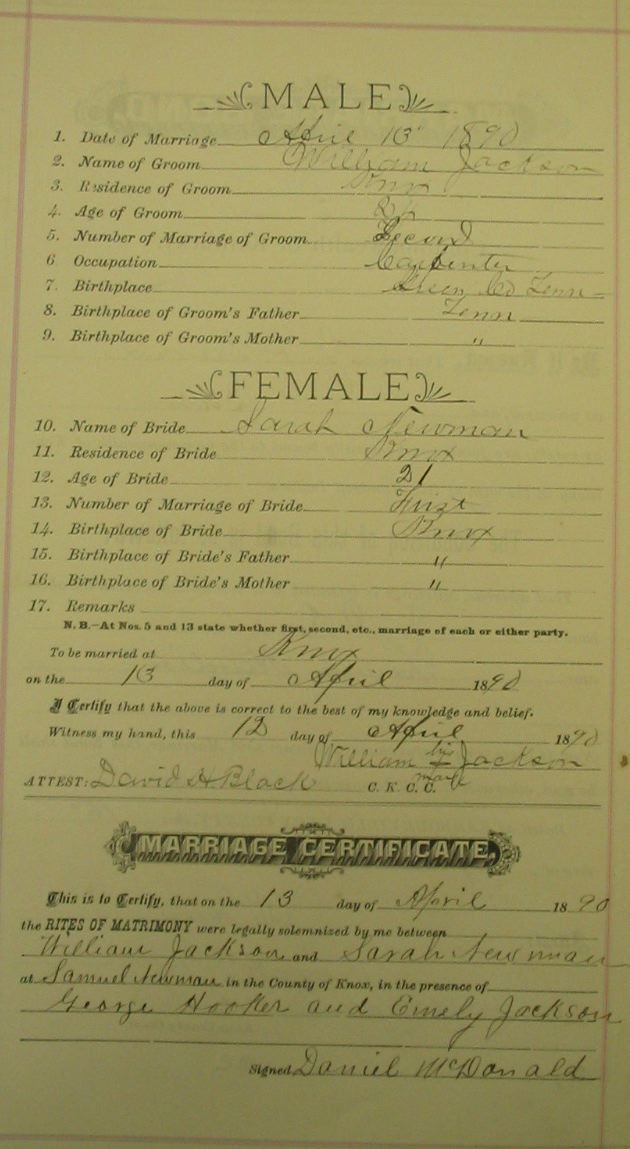 MALE
1. Date of Marriage April 13 1890
2. Name of Groom William Jackson
3. Residence of Groom Knox
4. Age of Groom
5. Number of Marriage of Groom Second
6 Occupation Carpenter
7. Birthplace Green Co Tenn
8. Birthplace of Groom's Father Tenn
9. Birthplace of Groom's Mother "
FEMALE
10. Name of Bride Sarah Newman
11. Residence of Bride Knox
12. Age of Bride 21
13. Number of Marriage of Bride First
14. Birthplace of Bride Knox
15. Birthplace of Bride's Father "
16. Birthplace of Bride's Mother "
17. Remarks
N. B.—At Nos. 5 and 13 state whether first, second, etc., marriage of each or either party.
To be married at Knox
on the 13 day of April 1890
I Certify that the above is correct to the best of my knowledge and belief.
Witness my hand, this 12 day of April 1890
William his Jackson
ATTEST: David H Black C. K. C. C. mark
MARRIAGE CERTIFICATE.
This is to Certify, that on the 13 day of April 1890
the RITES OF MATRIMONY were legally solemnized by me between
William Jackson and Sarah Newman
at Samuel Newman in the County of Knox, in the presence of
George Hooker and Emely Jackson
Signed Daniel McDonald